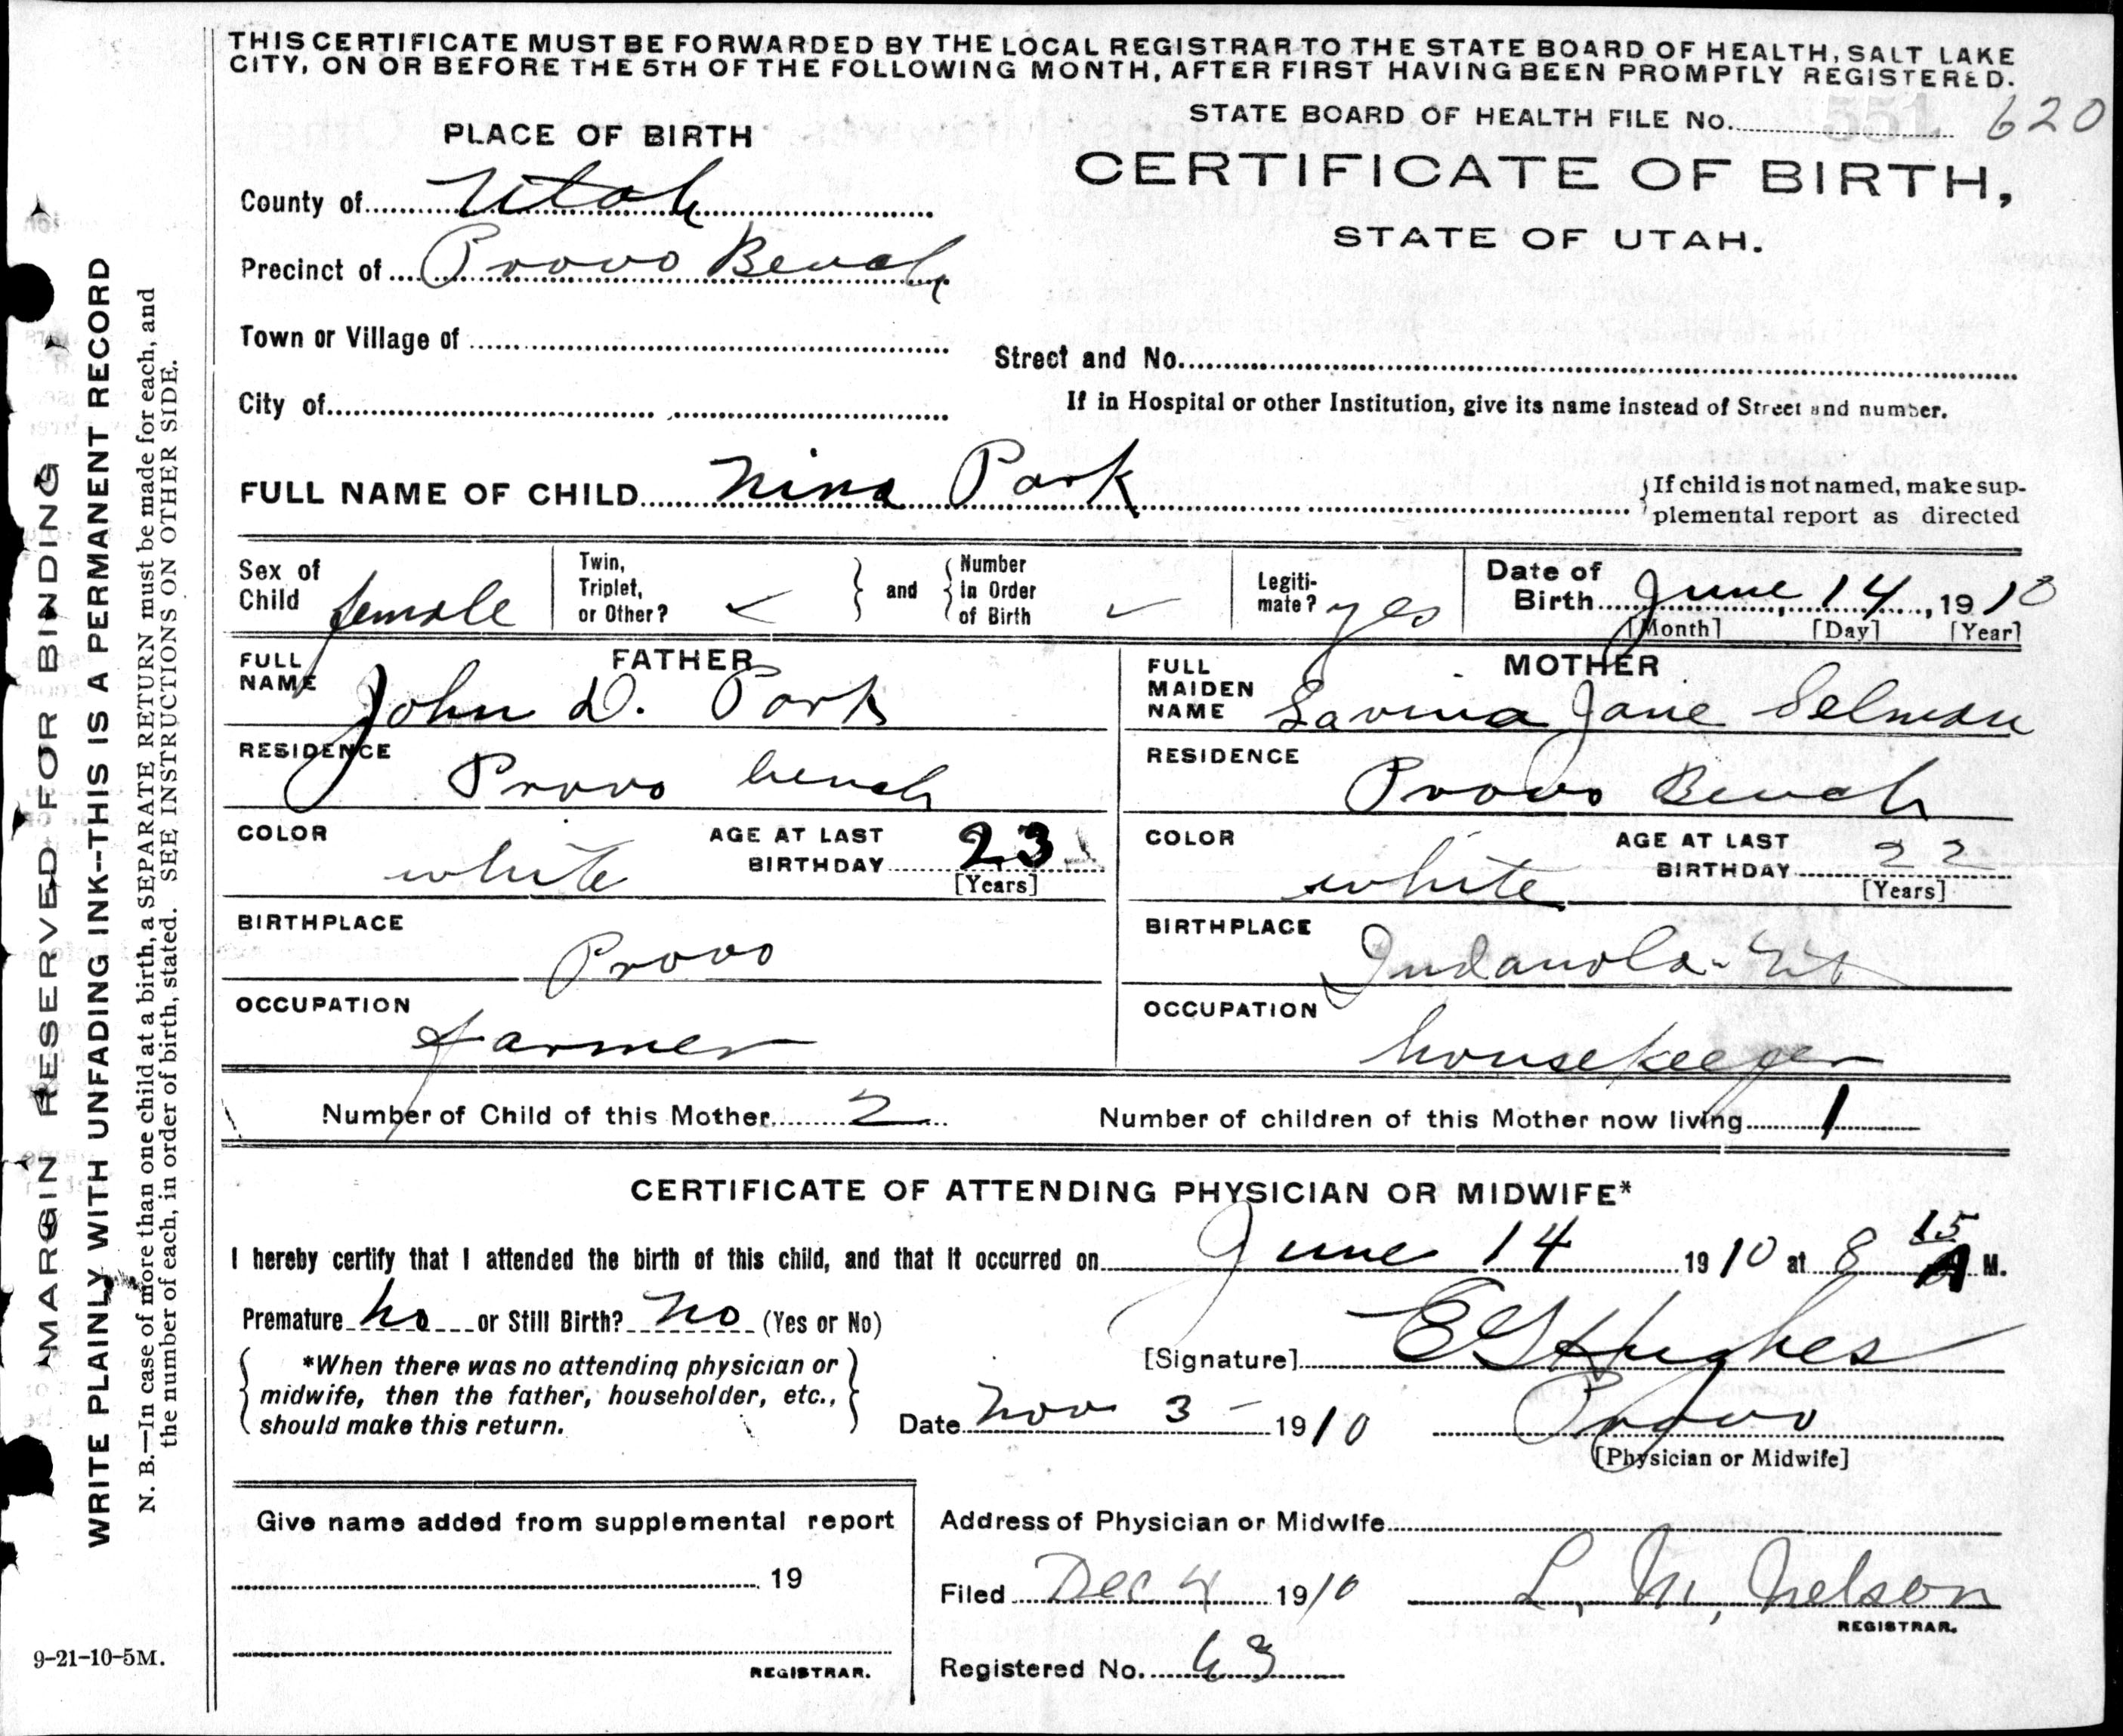 THIS CERTIFICATE MUST BE FORWARDED BY THE LOCAL REGISTRAR TO THE STATE BOARD OF HEALTH, SALT LAKE
CITY, ON OR BEFORE THE 5TH OF THE FOLLOWING MONTH, AFTER FIRST HAVING BEEN PROMPTLY REGISTERED.
STATE BOARD OF HEALTH FILE No. 551 620
PLACE OF BIRTH
CERTIFICATE OF BIRTH,
STATE OF UTAH.
County of Utah
Precinct of Provo Bench
Town or Village of
Street and No.
City of
If in Hospital or other Institution, give its name instead of Street and number.
FULL NAME OF CHILD Nina Park
If child is not named, make sup-
plemental report as directed
Sex of Child female
Twin, Triplet, or Other?
and
Number in Order of Birth
Legiti-mate? yes
Date of Birth June 14, 1910
[Month] [Day] [Year]
FATHER
FULL NAME John D. Park
RESIDENCE Provo bench
COLOR white
AGE AT LAST BIRTHDAY 23
[Years]
BIRTHPLACE Provo
OCCUPATION farmer
MOTHER
FULL MAIDEN NAME Lavina Jane Selman
RESIDENCE Provo Bench
COLOR white
AGE AT LAST BIRTHDAY 22
[Years]
BIRTHPLACE Indanola - Ut
OCCUPATION housekeeper
Number of Child of this Mother 2
Number of children of this Mother now living 1
CERTIFICATE OF ATTENDING PHYSICIAN OR MIDWIFE*
I hereby certify that I attended the birth of this child, and that it occurred on June 14 1910 at 8 15 A M.
Premature no or Still Birth? no (Yes or No)
*When there was no attending physician or
midwife, then the father, householder, etc.,
should make this return.
[Signature] E G Hughes
Date Nov 3 - 1910
Provo
[Physician or Midwife]
Give name added from supplemental report
19
REGISTRAR.
Address of Physician or Midwife
Filed Dec 4 1910
L. M. Nelson
REGISTRAR.
Registered No. 63
9-21-10-5M.
MARGIN RESERVED FOR BINDING
WRITE PLAINLY WITH UNFADING INK--THIS IS A PERMANENT RECORD
N. B.—In case of more than one child at a birth, a SEPARATE RETURN must be made for each, and
the number of each, in order of birth, stated. SEE INSTRUCTIONS ON OTHER SIDE.